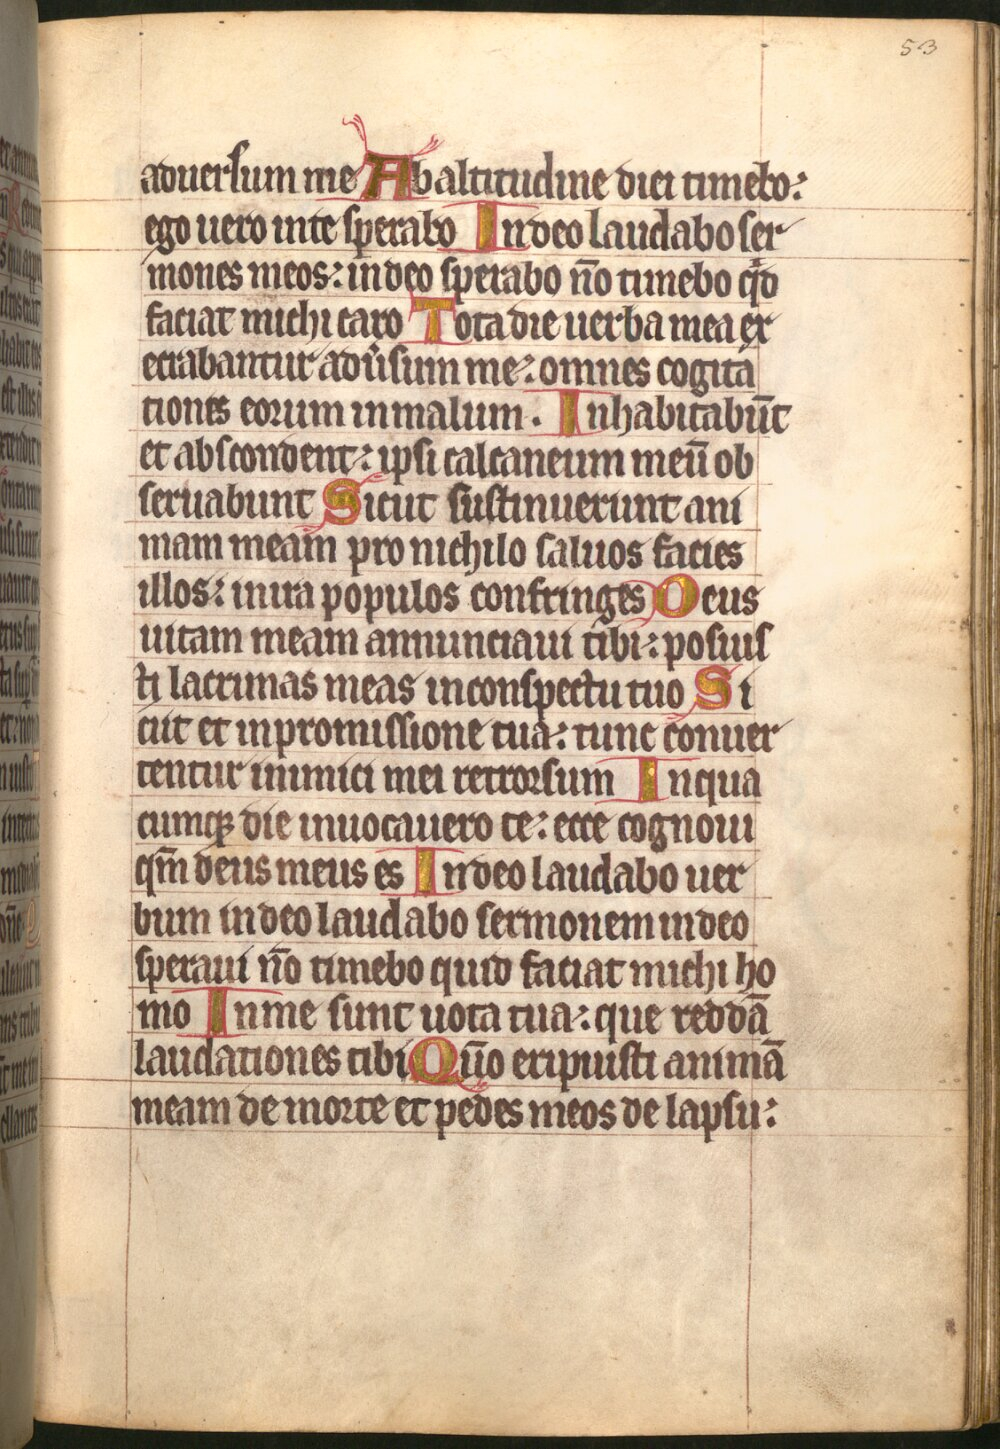 53
aduersum me Ab altitudine diei timebo:
ego uero inte sperabo In deo laudabo ser
mones meos: in deo sperabo nō timebo qđ
faciat michi caro Tota die uerba mea ex
ecrabantur adủsum me: omnes cogita
tiones eorum in malum. Inhabitabūt
et abscondent: ipsi calcaneum meū ob
seruabunt Sicut sustinuerunt ani
mam meam pro nichilo saluos facies
illos: in ira populos confringes Deus
uitam meam annunciaui tibi: posuis
ti lacrimas meas inconspectu tuo Si
cut et inpromissione tua: tunc conuer
tentur inimici mei retrorsum Inqua
cumqꝫ die inuocauero te: ecce cognoui
qm̄ deus meus es In deo laudabo uer
bum in deo laudabo sermonem in deo
speraui nō timebo quid faciat michi ho
mo In me sunt uota tua: que reddā
laudationes tibi Qūo eripuisti animā
meam de morte et pedes meos de lapsu: